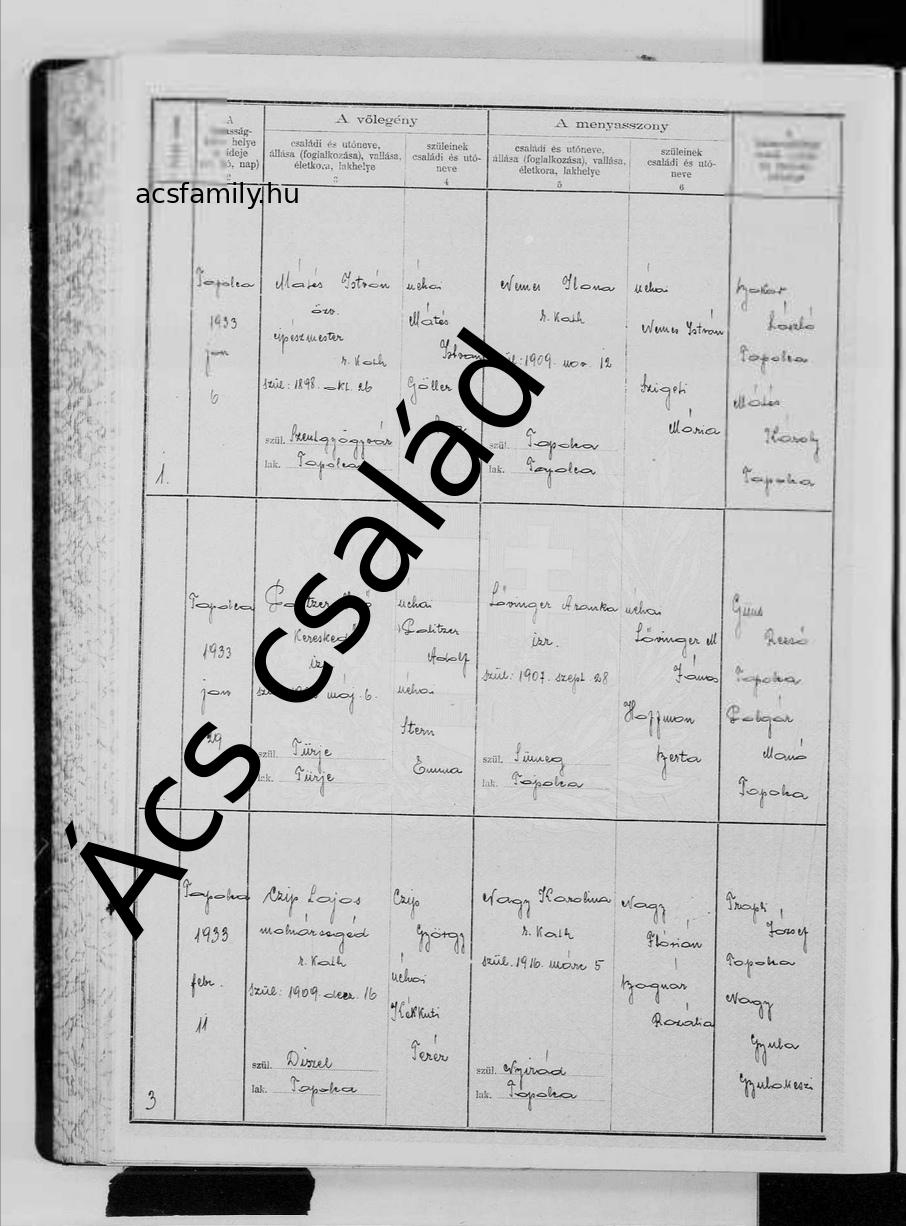 A vőlegény
A menyasszony
családi és utóneve,
állása (foglalkozása), vallása,
életkora, lakhelye
szüleinek
családi és utó-
neve
családi és utóneve,
állása (foglalkozása), vallása,
életkora, lakhelye
szüleinek
családi és utó-
neve
3
4
5
6
acsfamily.hu
Ács család
1.
Tapolca
1933
jan
6
Mátés István
özv.
cipészmester
r. Kath
szül: 1898. okt. 26
szül. Szentgyörgyvár
lak. Tapolca
néhai
Mátés
István
Göller
Nemes Ilona
r. Kath
1909. nov. 12
szül. Tapolca
lak. Tapolca
néhai
Nemes István
Szigeti
Mária
László
Tapolca
Mátés
Károly
Tapolca
Tapolca
1933
jan
29
máj. 6.
szül. Türje
lak. Türje
néhai
Politzer
Adolf
néhai
Stern
Emma
Lövinger Aranka
izr.
szül: 1907. szept. 28
szül. Sümeg
lak. Tapolca
néhai
Lövinger M
János
Hoffman
Berta
Rezső
Tapolca
Polgár
Manó
Tapolca
3
Tapolca
1933
febr.
11
Czip Lajos
molnársegéd
r. Kath
szül: 1909. dec. 16
szül. Diszel
lak. Tapolca
Czip
György
néhai
Kékkuti
Teréz
Nagy Karolina
r. Kath
szül. 1916. márc 5
szül. Nyirád
lak. Tapolca
Nagy
Flórián
Bognár
Rozália
József
Tapolca
Nagy
Gyula
Gyulakeszi